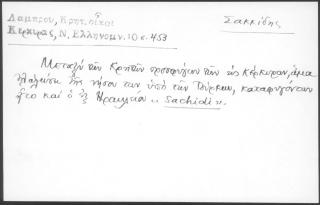 Λάμπρου, Κρητ. οἶκοι Σακκίδης
Κερκύρας, Ν. Ἑλληνομν. 10 σ. 453
Μεταξὺ τῶν Κρητῶν προσφύγων τῶν εἰς Κέρκυραν, ἅμα
τῆς νήσου των ὑπὸ τῶν Τούρκων, καταφυγόντων
ἦτο καὶ ὁ ἐξ Ἡρακλείου « Sachidi ».